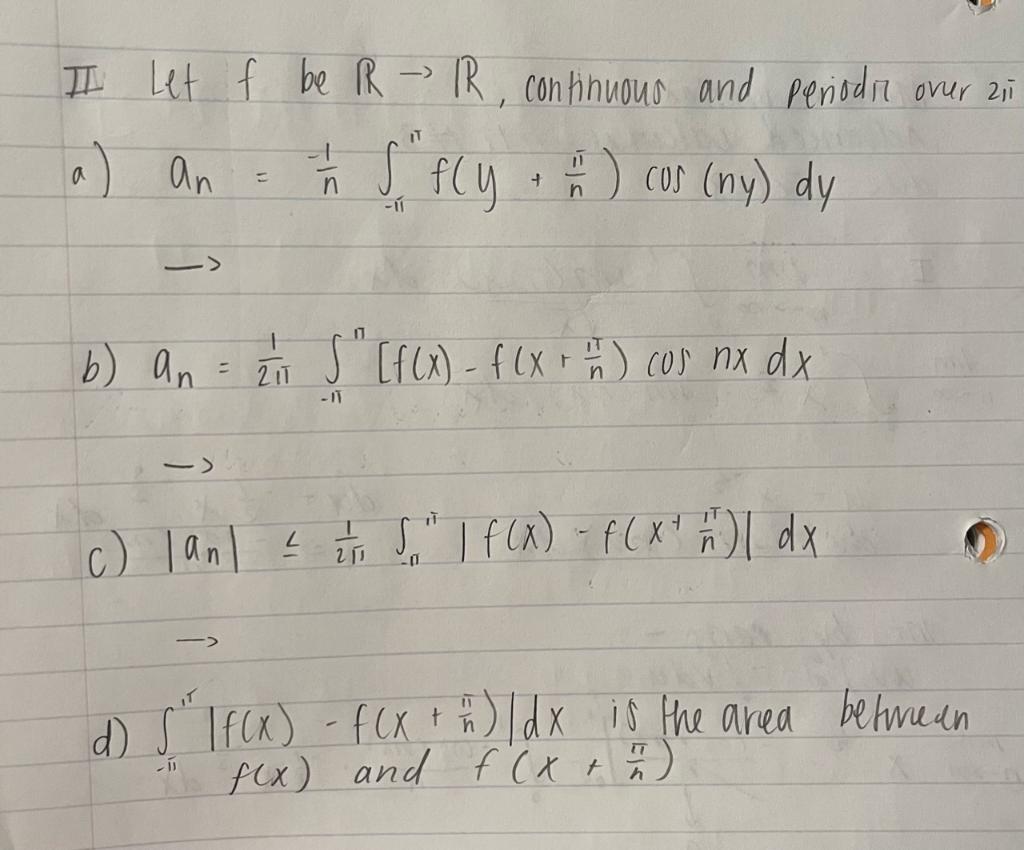 II Let f be ℝ → ℝ, continuous and periodic over 2π
a) aₙ = -1/n ∫_{-π}^{π} f(y + π/n) cos (ny) dy
→
b) aₙ = 1/2π ∫_{-π}^{π} [f(x) - f(x + π/n) cos nx dx
→
c) |aₙ| ≤ 1/2π ∫_{-π}^{π} | f(x) - f(x + π/n)| dx
→
d) ∫_{-π}^{π} |f(x) - f(x + π/n)|dx is the area between
f(x) and f(x + π/n)